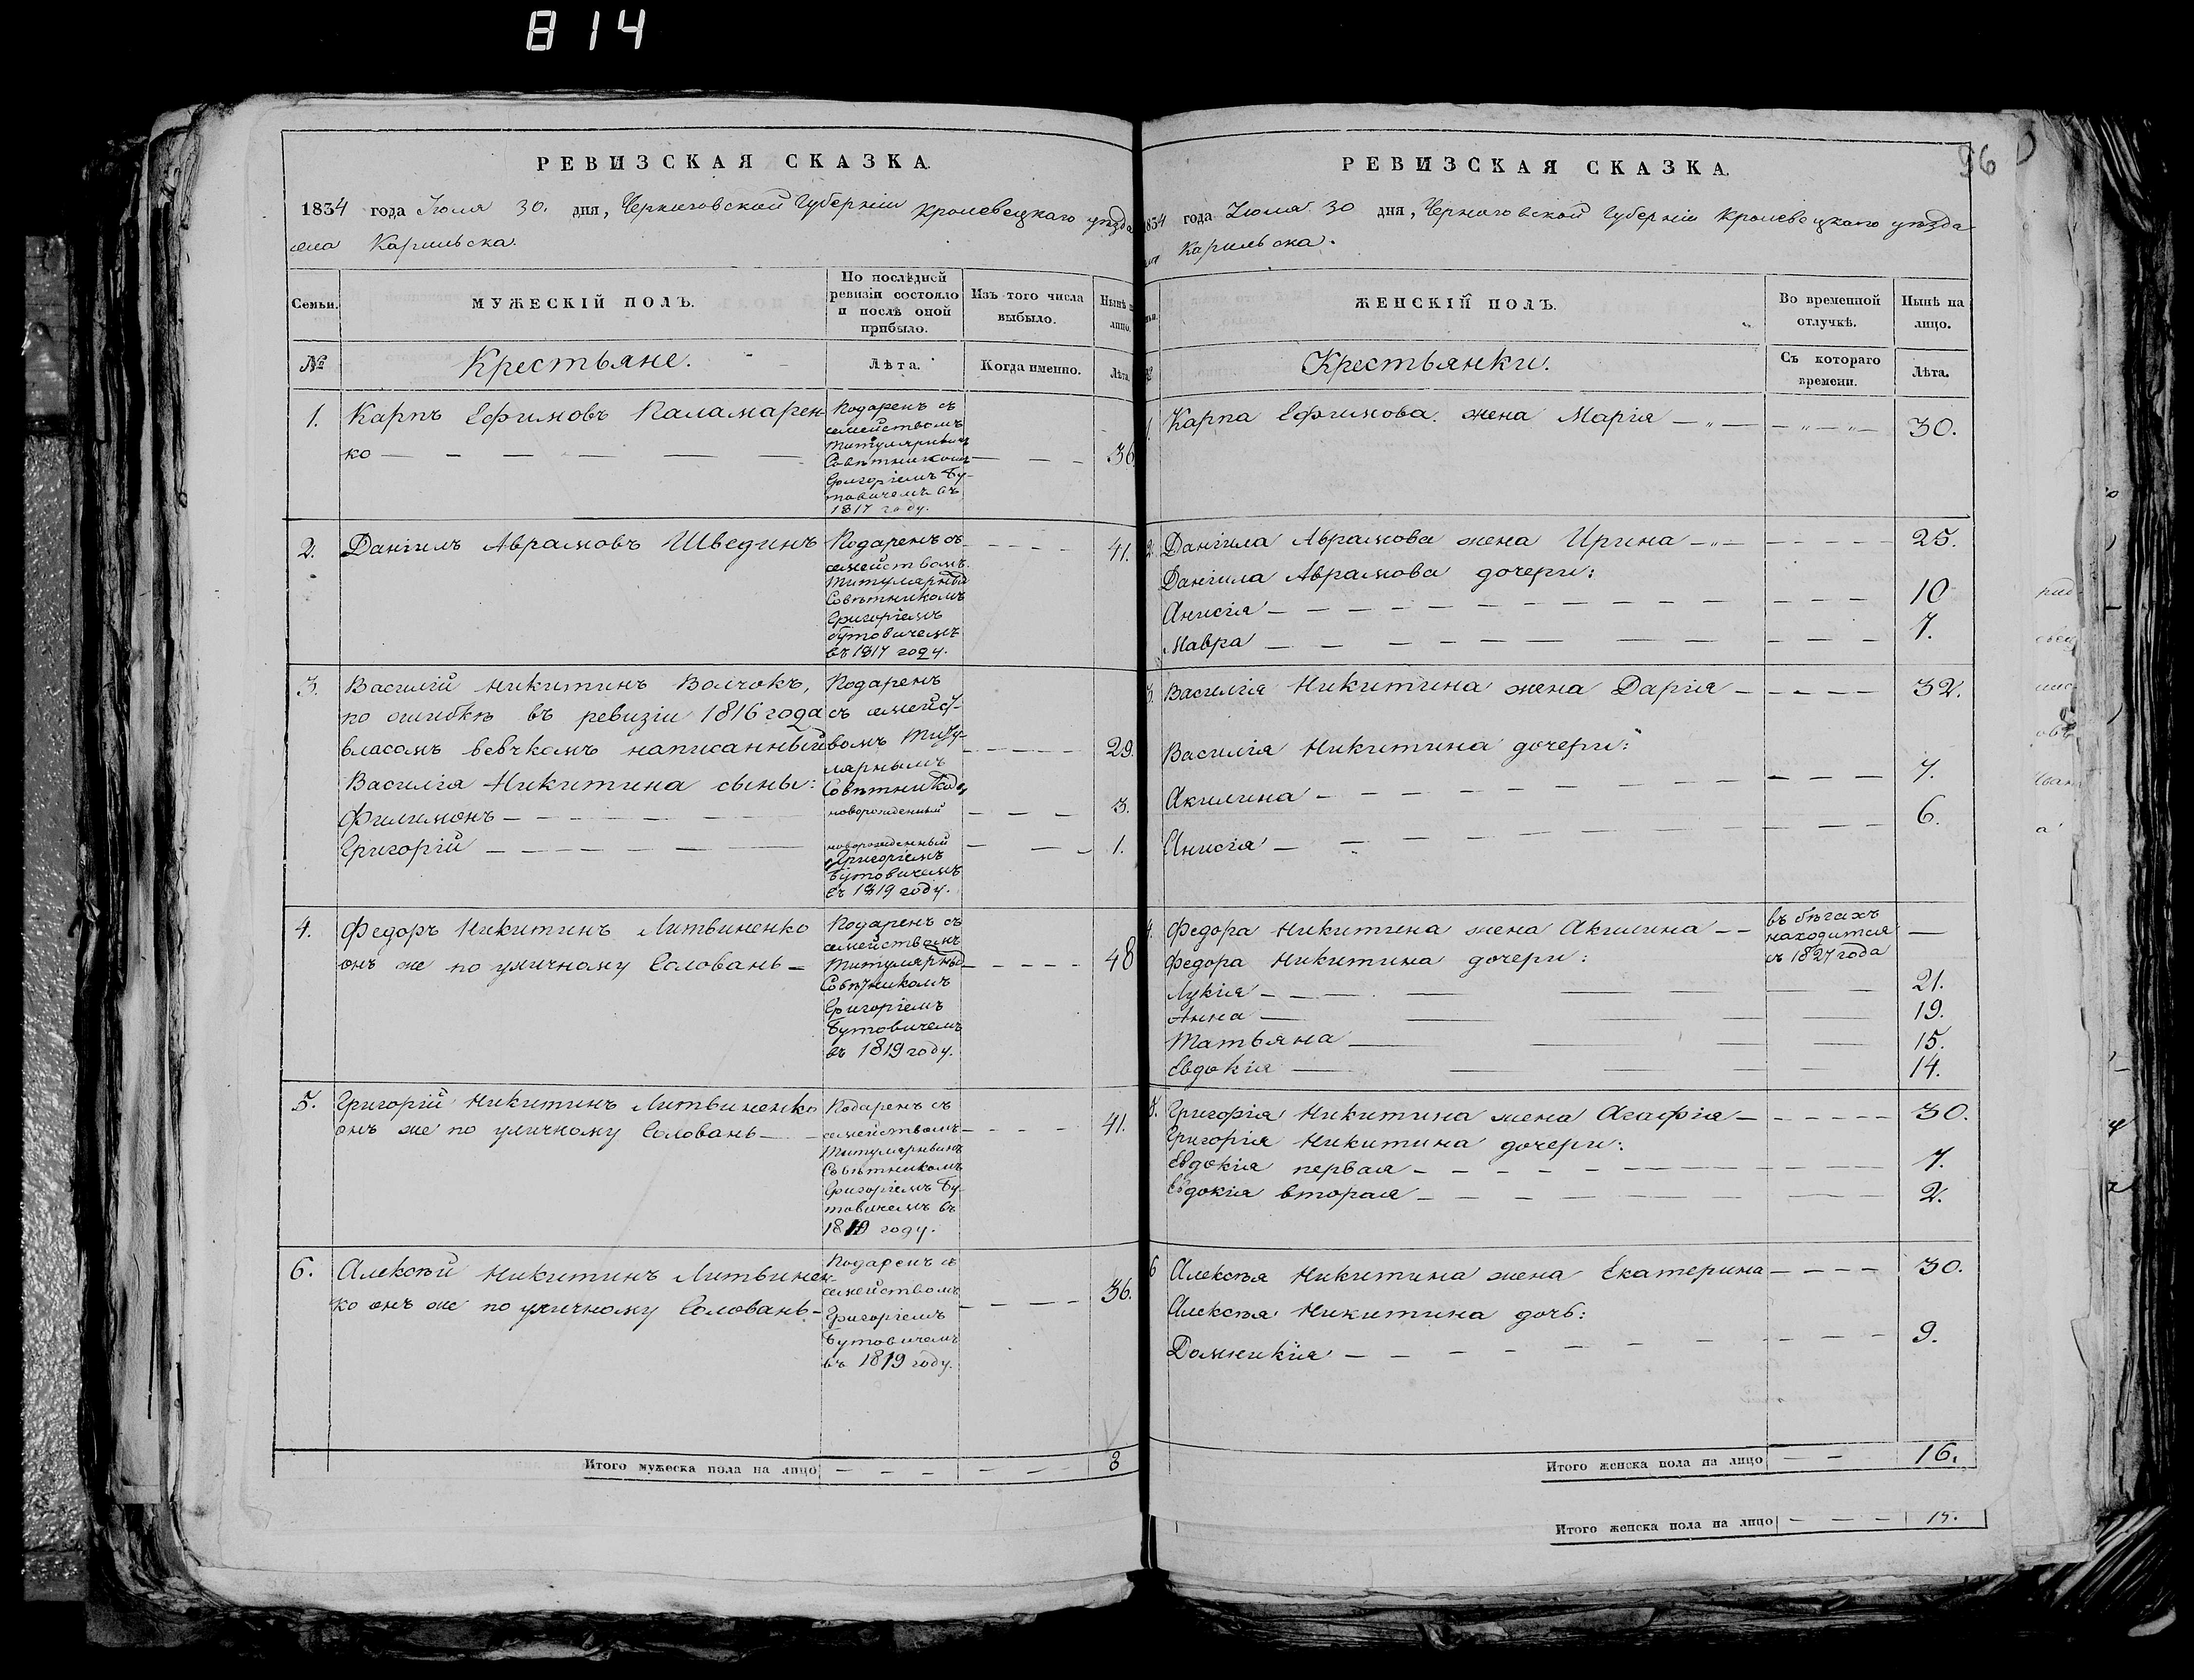 814
РЕВИЗСКАЯ СКАЗКА.
1834 года Іюля 30. дня, Черниговской Губерніи Кролевецкаго уѣзда
села Карильска.
Семьи.
МУЖЕСКІЙ ПОЛЪ.
По послѣдней ревизіи состояло и послѣ оной прибыло.
Изъ того числа выбыло.
Нынѣ на лицо.
№
Крестьяне.
Лѣта.
Когда именно.
Лѣта.
1. Карпъ Ефимовъ Паламарен-
ко — — — — — — 36
Подаренъ съ
семействомъ
Титулярнымъ
Совѣтникомъ
Григоріемъ Бу-
товичемъ въ
1817 году.
2. Даніилъ Аврамовъ Швединъ — — — — 41.
Подаренъ съ
семействомъ
Титулярнымъ
Совѣтникомъ
Григоріемъ
Бутовичемъ
въ 1817 году.
3. Василій Никитинъ Волчокъ,
по ошибкѣ въ ревизіи 1816 года
власомъ вовчкомъ написанный — — — — 29.
Василія Никитина сыны:
Филимонъ — — — новорожденный — — — 3.
Григорій — — — новорожденный — — — 1.
Подаренъ
съ семейст-
вомъ Титу-
лярнымъ
Совѣтникомъ
Григоріемъ
Бутовичемъ
въ 1819 году.
4. Федоръ Никитинъ Литвиненко
онъ же по уличному Соловань — — — — — 48
Подаренъ съ
семействомъ
Титулярнымъ
Совѣтникомъ
Григоріемъ
Бутовичемъ
въ 1819 году.
5. Григорій Никитинъ Литвиненко
онъ же по уличному Соловань — — — — — 41.
Подаренъ съ
семействомъ
Титулярнымъ
Совѣтникомъ
Григоріемъ Бу-
товичемъ въ
1819 году.
6. Алексѣй Никитинъ Литвинен-
ко онъ же по уличному Соловань — — — — — 36.
Подаренъ съ
семействомъ
Григоріемъ
Бутовичемъ
въ 1819 году.
Итого мужеска пола на лицо — — — — — — 8
96
РЕВИЗСКАЯ СКАЗКА.
1834 года Іюля 30 дня, Черниговской Губерніи Кролевецкаго уѣзда
Карильска.
ЖЕНСКІЙ ПОЛЪ.
Во временной отлучкѣ.
Нынѣ на лицо.
Крестьянки.
Съ котораго времени.
Лѣта.
1. Карпа Ефимова жена Марія — „ — — „ — „ — 30.
2. Даніила Аврамова жена Ирина — „ — — — — — — 25.
Даніила Аврамова дочери:
Анисія — — — — — — 10
Мавра — — — — — — 7.
3. Василія Никитина жена Дарія — — — — — 32.
Василія Никитина дочери:
Акилина — — — — — — 7.
Анисія — — — — — — 6.
4. Федора Никитина жена Акилина — — въ бѣгахъ —
находится
съ 1827 года
Федора Никитина дочери:
Лукія — — — — — 21.
Анна — — — — — 19.
Татьяна — — — — 15.
Евдокія — — — — 14.
5. Григорія Никитина жена Агафія — — — — — — 30.
Григорія Никитина дочери:
Евдокія первая — — — — — — 7.
Евдокія вторая — — — — — — 2.
6 Алексѣя Никитина жена Екатерина — — — — 30.
Алексѣя Никитина дочь:
Домникія — — — — — — 9.
Итого женска пола на лицо — — 16.
Итого женска пола на лицо — — — 15.